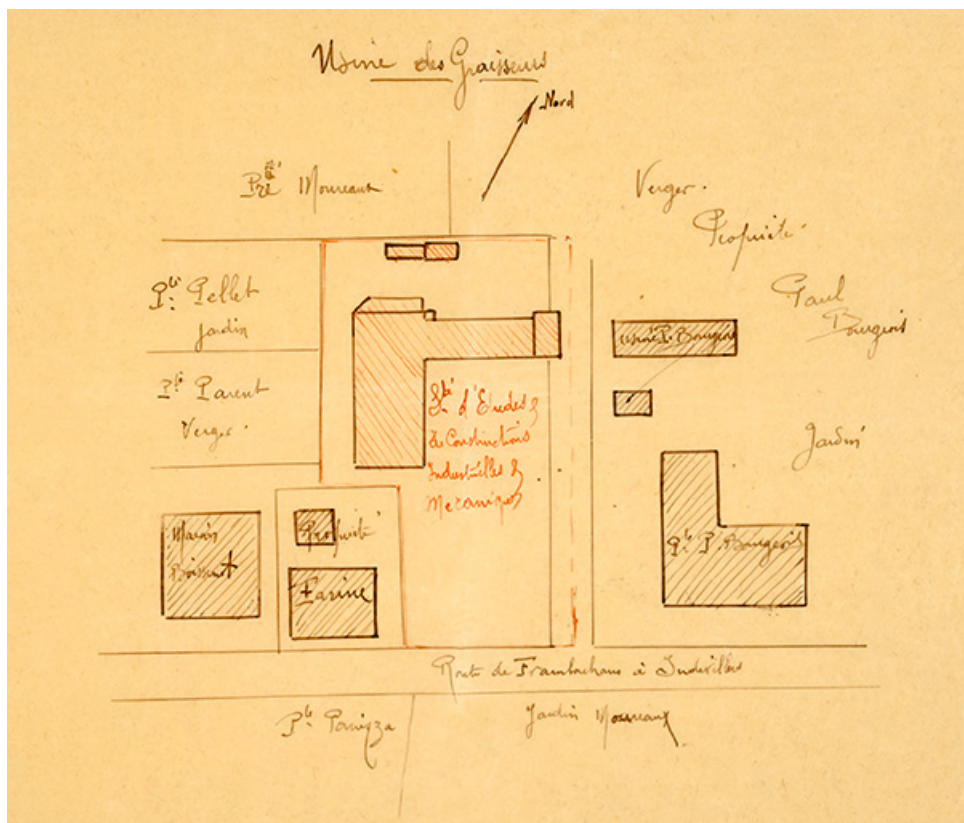 Usine des Graisseurs
Nord
Pté Moureaux
Verger.
Propriété
Paul
Bourgeois
Pté Pellet
Jardin
Pté Parent
Verger.
usine P. Bourgeois
Sté d'Etudes &
de Constructions
Industrielles &
Mécaniques
Jardin
Maison
Boissenot
Propriété
Farine
Pté P. Bourgeois
Route de Frambouhans à Indevillers
Pté Panizza
Jardin Moureaux